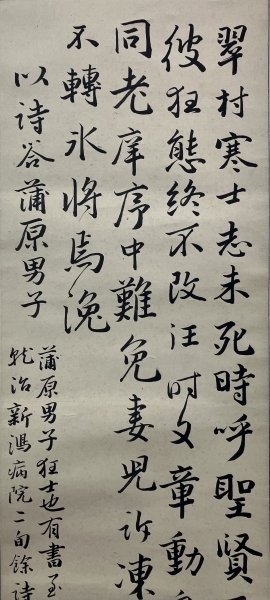 翠村寒士志未死時呼聖賢
彼狂態終不改汪時文章動
同老庠序中難免妻児訴凍
不轉氷將焉浼
以詩答蒲原男子
蒲原男子狂士也有書至
就治新潟病院二旬餘詩